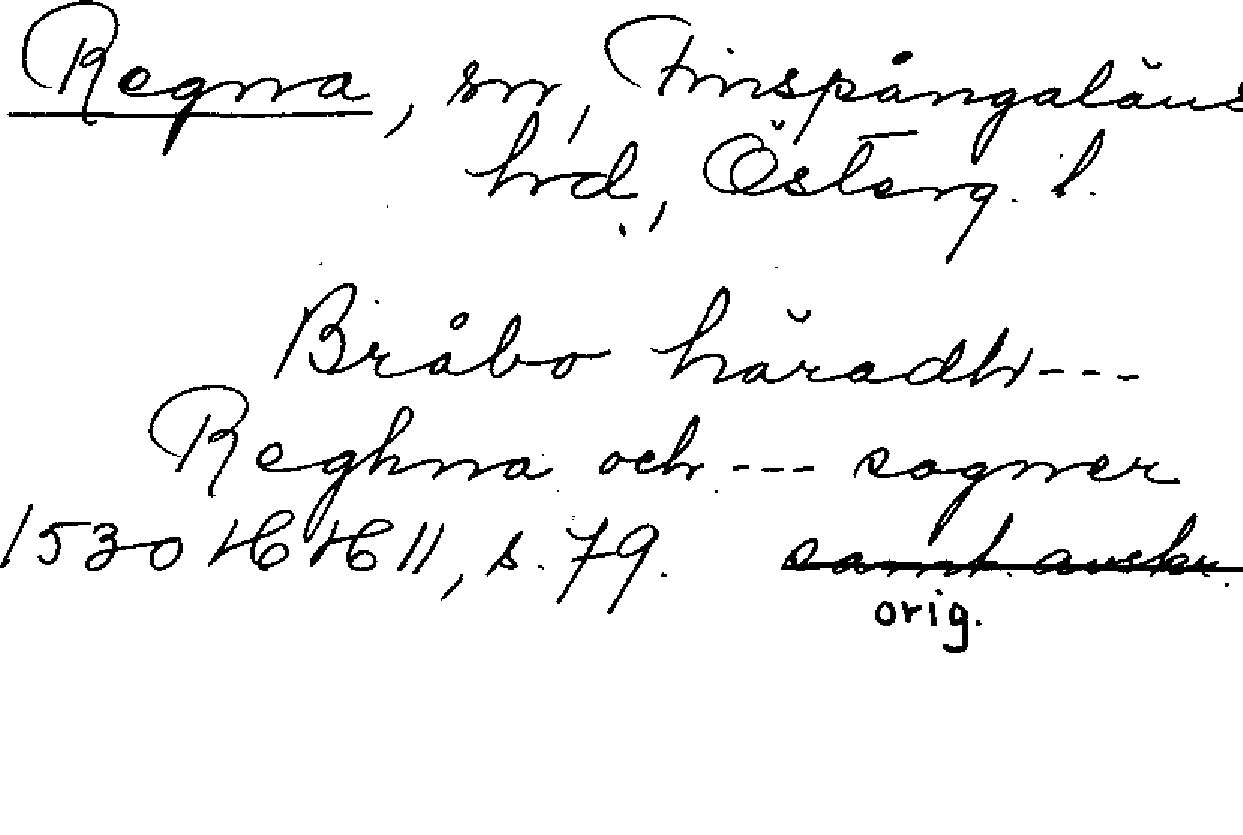 Regna, sn, Finspångaläns
hrd., Österg. l.
Bråbo häradh---
Reghna och --- sogner
1530 HH 11, s. 79. samt. avskr.
orig.